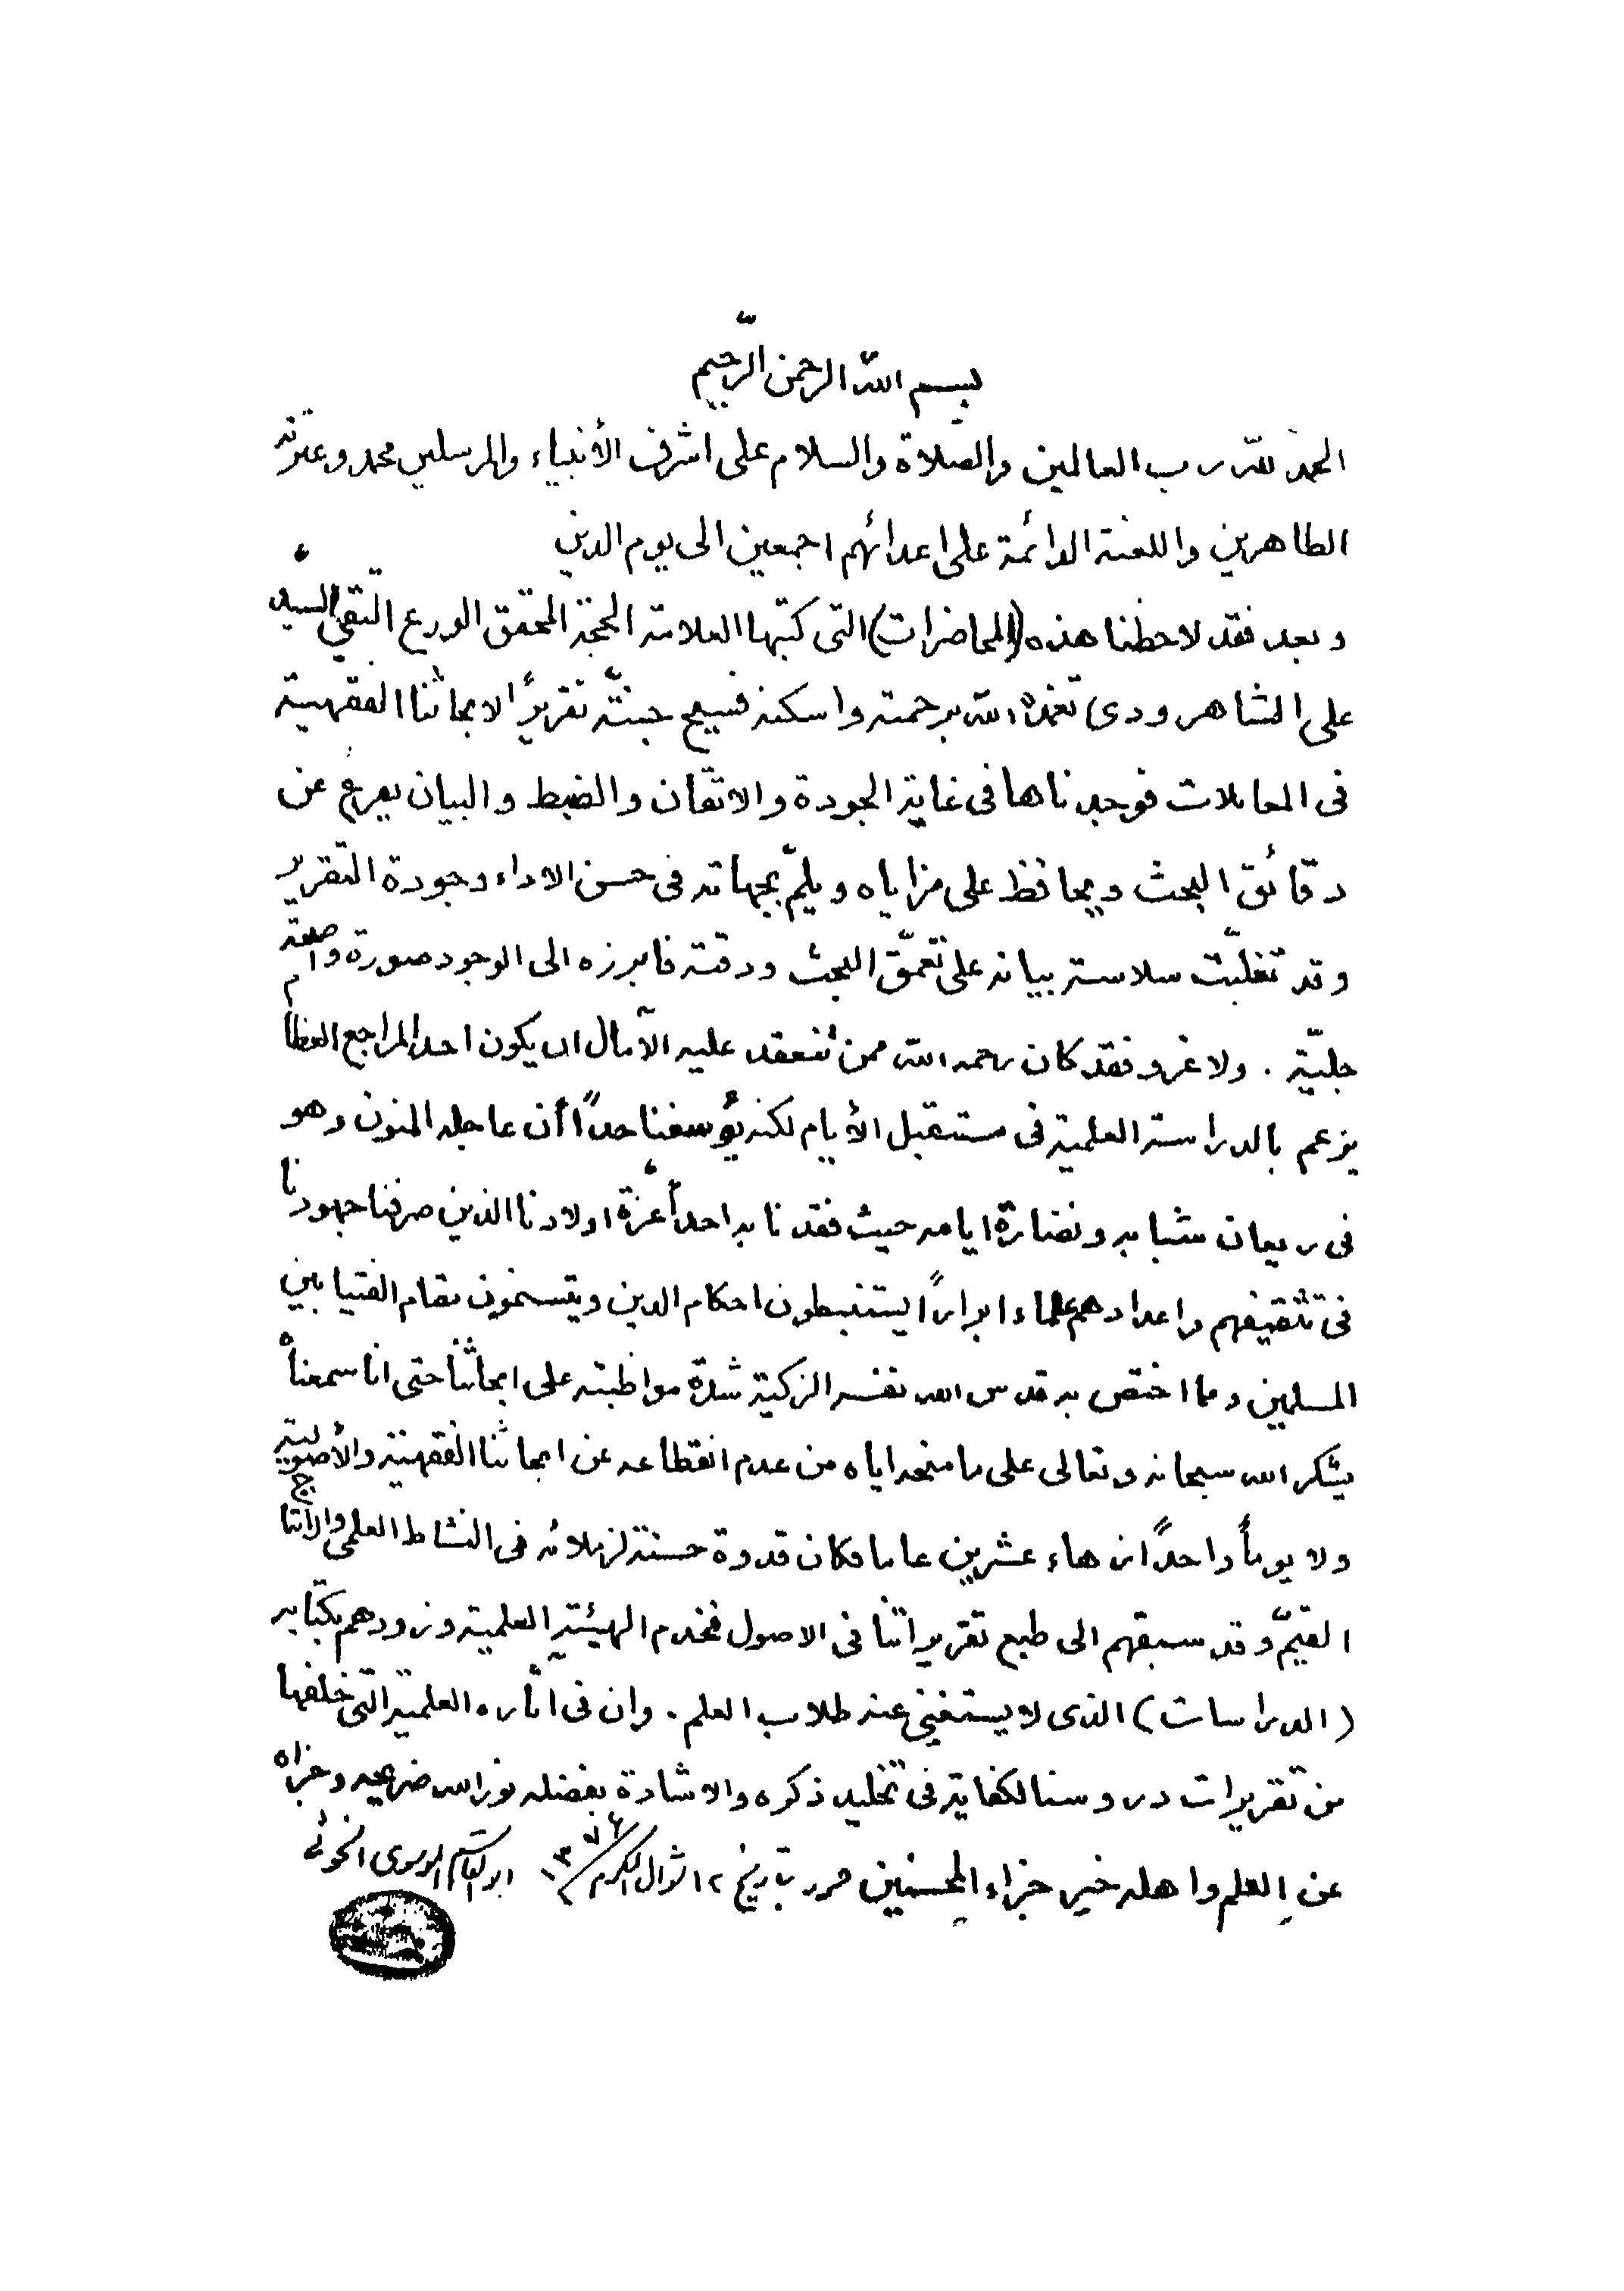 بسم الله الرحمن الرحيم
الحمد لله رب العالمين والصلاة والسلام على اشرف الأنبياء والمرسلين محمد وعترته
الطاهرين واللعنة الدائمة على اعدائهم اجمعين الى يوم الدين
وبعد فقد لاحظنا هذه (المحاضرات) التى كتبها العلامة الحجة المحقق الورع التقي السيد
على الشاهرودى تغمده الله برحمته واسكنه فسيح جنته تقريرًا لابحاثنا الفقهية
فى المعاملات فوجدناها فى غاية الجودة والاتقان والضبط والبيان يعرب عن
دقائق البحث ويحافظ على مزاياه ويلمّ بجهاته فى حسن الاداء وجودة التقرير
وقد تغلّبت سلاسة بيانه على تعمّق البحث ودقته فابرزه الى الوجود صورة واضحة
جليّة . ولا غرو فقد كان رحمه الله ممن تنعقد عليه الآمال ان يكون احد المراجع العظام
يزعم بالدراسة العلمية فى مستقبل الأيام لكنه يؤسفنا جدًا أن عاجله المنون وهو
فى ريعان شبابه ونضارة ايامه حيث فقدنا به احد أعزة اولادنا الذين صرفنا جهودنا
فى تثقيفهم واعدادهم علماء ابرارًا يستنبطون احكام الدين ويتسنمون مقام الفتيا بين
المسلمين ومما اختص به قدس الله نفسه الزكية شدة مواظبته على ابحاثنا حتى انا سمعناه
يشكر الله سبحانه وتعالى على ما منحه اياه من عدم انقطاعه عن ابحاثنا الفقهية والأصولية
ولا يومًا واحدًا زهاء عشرين عاما فكان قدوة حسنة لزملائه فى النشاط العلمى والانتاج
القيّم وقد سبقهم الى طبع تقريراتنا فى الاصول فخدم الهيئة العلمية وزودهم بكتابه
(الدراسات) الذى لا يستغنى عنه طلاب العلم . وان فى آثاره العلمية التى خلفها
من تقريرات دروسنا لكفاية فى تخليد ذكره والاشادة بفضله نور الله ضريحه وجزاه
عن العلم واهله خير جزاء المحسنين حرر بتاريخ ١٢ شوال المكرم ١٣٧٦ ابو القاسم الموسوى الخوئى